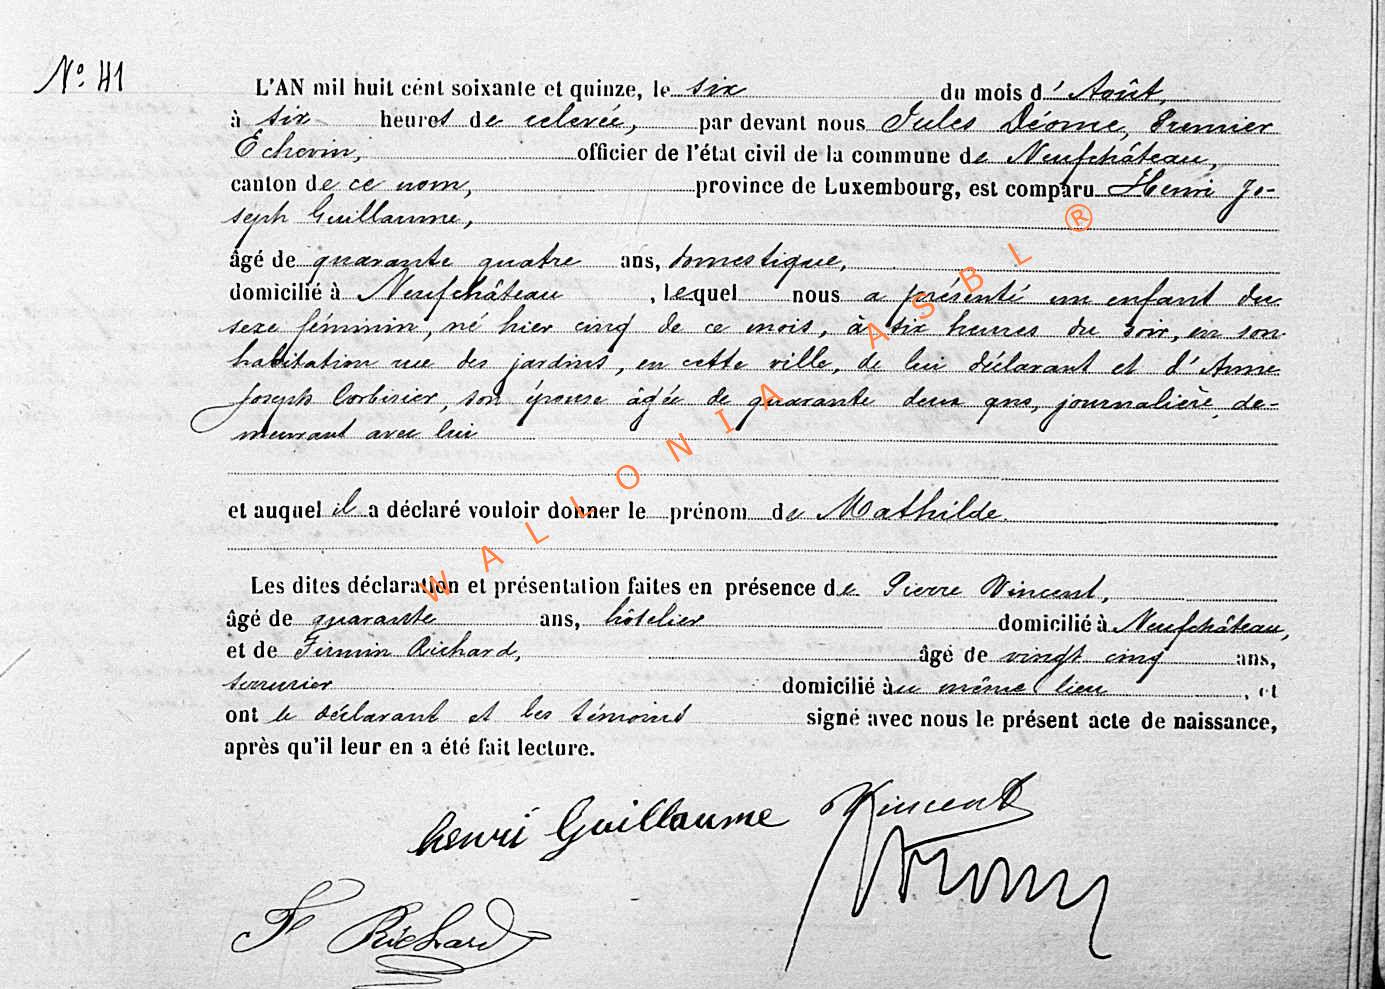 N° 41
L'AN mil huit cent soixante et quinze, le six du mois d'Août,
à six heures de relevée, par devant nous Jules Déome, Premier
Echevin, officier de l'état civil de la commune de Neufchâteau,
canton de ce nom, province de Luxembourg, est comparu Henri Jo-
seph Guillaume,
âgé de quarante quatre ans, domestique,
domicilié à Neufchâteau, lequel nous a présenté un enfant du
sexe féminin, né hier cinq de ce mois, à six heures du soir, en son
habitation rue des jardins, en cette ville, de lui déclarant et d'Anne
Joseph Corbisier, son épouse âgée de quarante deux ans, journalière, de-
meurant avec lui
et auquel il a déclaré vouloir donner le prénom de Mathilde.
Les dites déclaration et présentation faites en présence de Pierre Vincent,
âgé de quarante ans, hôtelier domicilié à Neufchâteau,
et de Firmin Richard, âgé de vingt cinq ans,
serrurier domicilié au même lieu, et
ont le déclarant et les témoins signé avec nous le présent acte de naissance,
après qu'il leur en a été fait lecture.
henri Guillaume Vincent
F Richard
WALLONIA ASBL ®